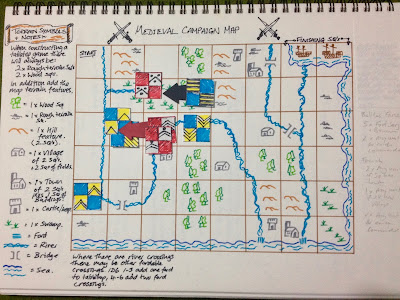 MEDIEVAL CAMPAIGN MAP
TERRAIN SYMBOLS
NOTES
When constructing a
tabletop game there
will always be:
2 x Rough terrain sqs.
2 x Wood sqs.
in addition add the
map terrain features.
= 1 x Wood Sq.
= 1 x Rough terrain
sq.
= 1 x Hill
feature.
(2 sqs).
= 1 x Village
of 2 sqs.
+ 2 sqs of fields.
= 1 x Town
of 2 sqs
of Buildings.
= 1 x Castle/
= 1 x Swamp.
= Ford
= River
= Bridge
= Sea.
START
FINISHING SQS
Where there are river crossings
there may be other fordable
crossings. 1D6 1-3 add one ford
to tabletop, 4-6 add two ford
crossings.